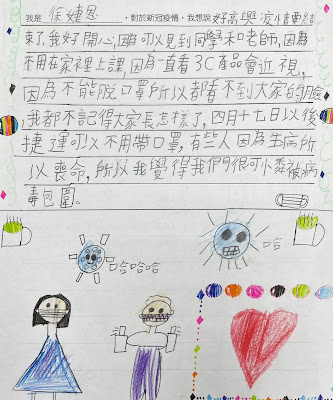 我是 徐婕恩 ,對於新冠疫情,我想說好高興疫情要結
束了,我好開心,因為可以見到同學和老師,因為
不用在家裡上課,因為一直看3C產品會近視,
因為不能脫口罩所以都看不到大家的臉
我都不記得大家長怎樣了,四月十七日以後
捷運可以不用帶口罩,有些人因為生病所
以喪命,所以我覺得我們很可憐被病
毒包圍。
哈
哈哈哈